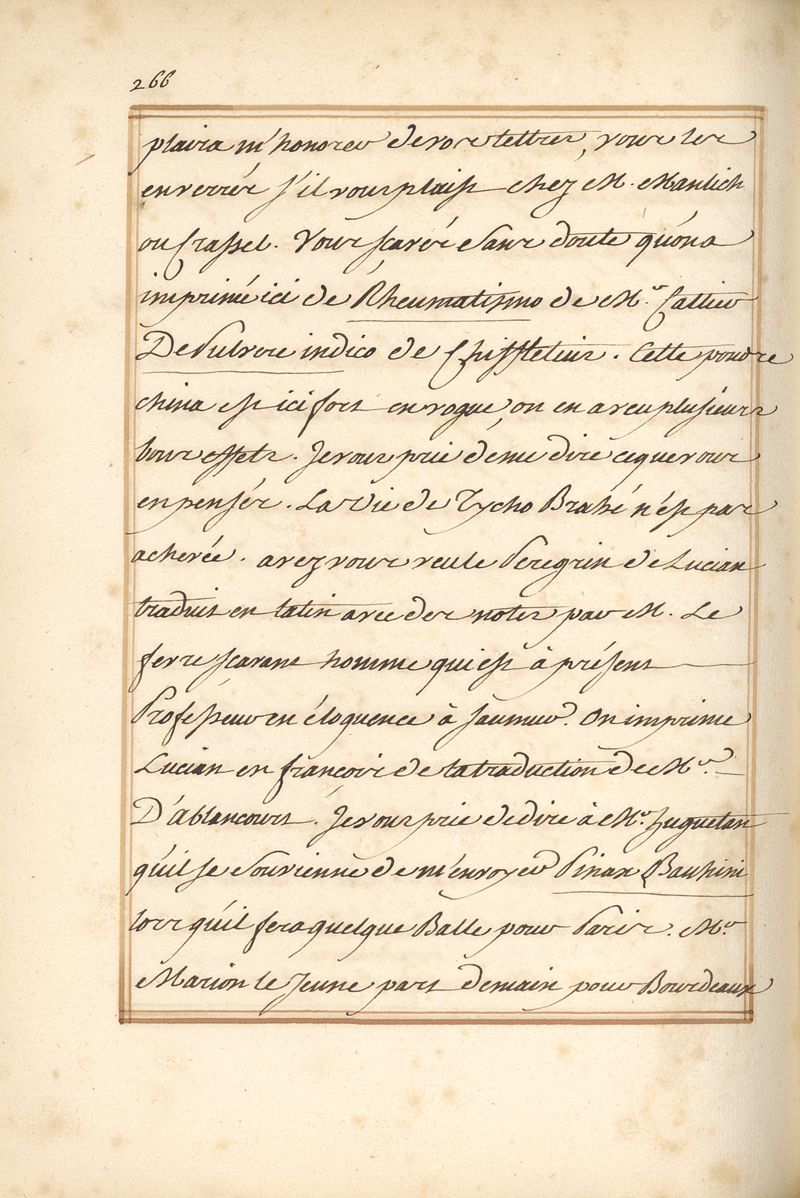 266
plaira m'honorer de vos lettres, vous les
envoirés s'il vous plaist chez M. Maulich
ou Crassel. Vous scavés sans doute qu'on a
imprimé ici de Rheumatismo de Mr. Cattier
De Pulvere indico de Chiffletius. Cette poudre
china est ici fort en vogue, on en a veu plusieurs
bons effets. Je vous prie de me dire ce que vous
en pensés. La vie de Tycho Brahé n'est pas
achevée. avez vous veu le Peregrin de Lucian
traduit en latin avec des notes par M. Le
febre scavant homme qui est à présent
Professeur en éloquence à Saumur. On imprime
Lucian en francois de la traduction de Mr.
D'Ablancourt. Je vous prie de dire à Mr. huguetan
qu'il se souvienne de m'envoyer Pinax Bauhini
lors qu'il fera quelque Balle pour Paris. Mr.
Marion le Jeune part demain pour Bourdeaux